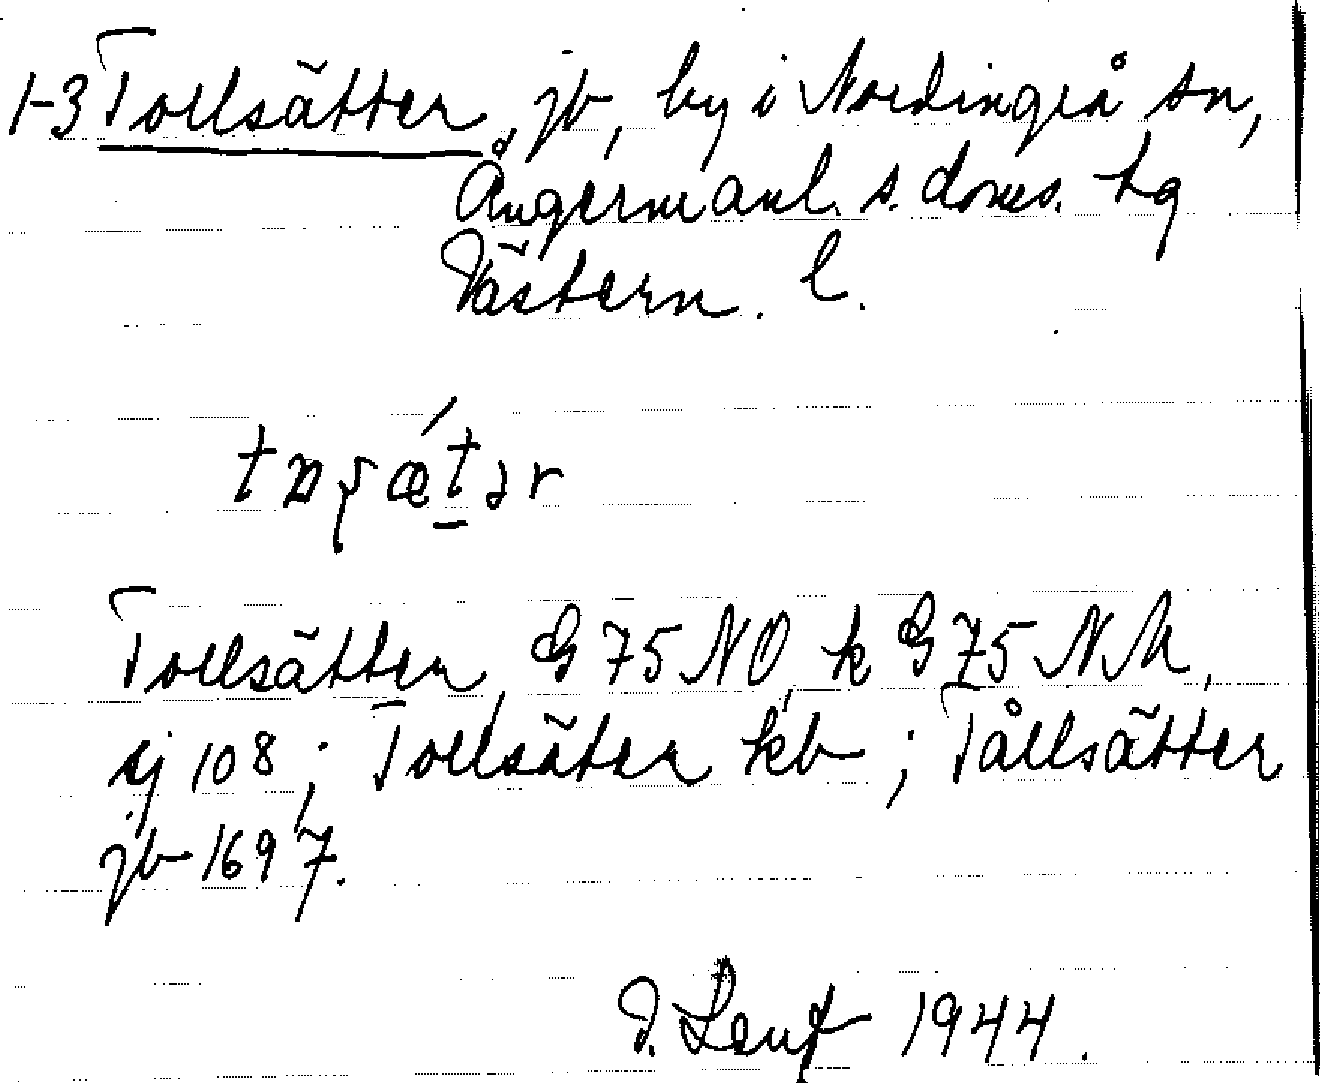 1-3 Tollsätter, jb, by i Nordingrå sn,
Ångermanl. s. doms. hg
Västern. l.
Tollsätter, G 75 NO, k G 75 NM,
sj 108; Tollsäter kb; Tållsätter
jb 1697.
1944.